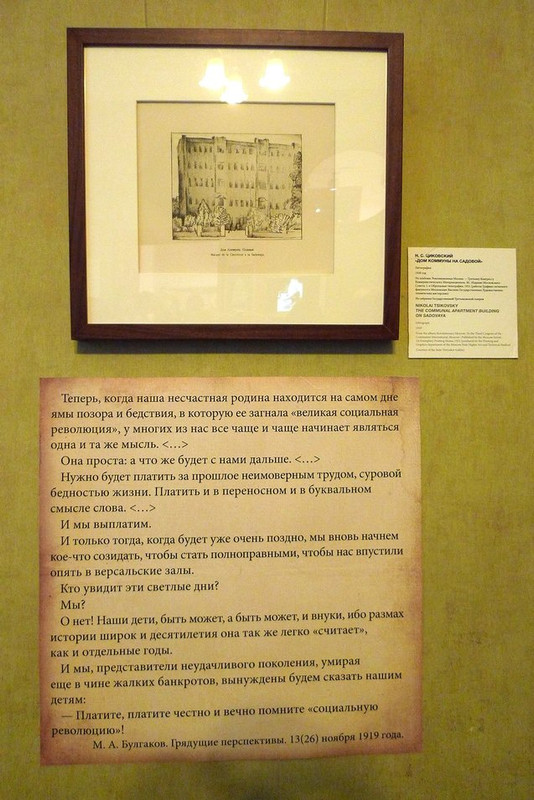 Н. С. ЦИКОВСКИЙ
«ДОМ КОММУНЫ НА САДОВОЙ»
Литография
NIKOLAI TSIKOVSKY
THE COMMUNAL APARTMENT BUILDING
ON SADOVAYA
Теперь, когда наша несчастная родина находится на самом дне
ямы позора и бедствия, в которую ее загнала «великая социальная
революция», у многих из нас все чаще и чаще начинает являться
одна и та же мысль. <…>
Она проста: а что же будет с нами дальше. <…>
Нужно будет платить за прошлое неимоверным трудом, суровой
бедностью жизни. Платить и в переносном и в буквальном
смысле слова. <…>
И мы выплатим.
И только тогда, когда будет уже очень поздно, мы вновь начнем
кое-что созидать, чтобы стать полноправными, чтобы нас впустили
опять в версальские залы.
Кто увидит эти светлые дни?
Мы?
О нет! Наши дети, быть может, а быть может, и внуки, ибо размах
истории широк и десятилетия она так же легко «считает»,
как и отдельные годы.
И мы, представители неудачливого поколения, умирая
еще в чине жалких банкротов, вынуждены будем сказать нашим
детям:
— Платите, платите честно и вечно помните «социальную
революцию»!
М. А. Булгаков. Грядущие перспективы. 13(26) ноября 1919 года.